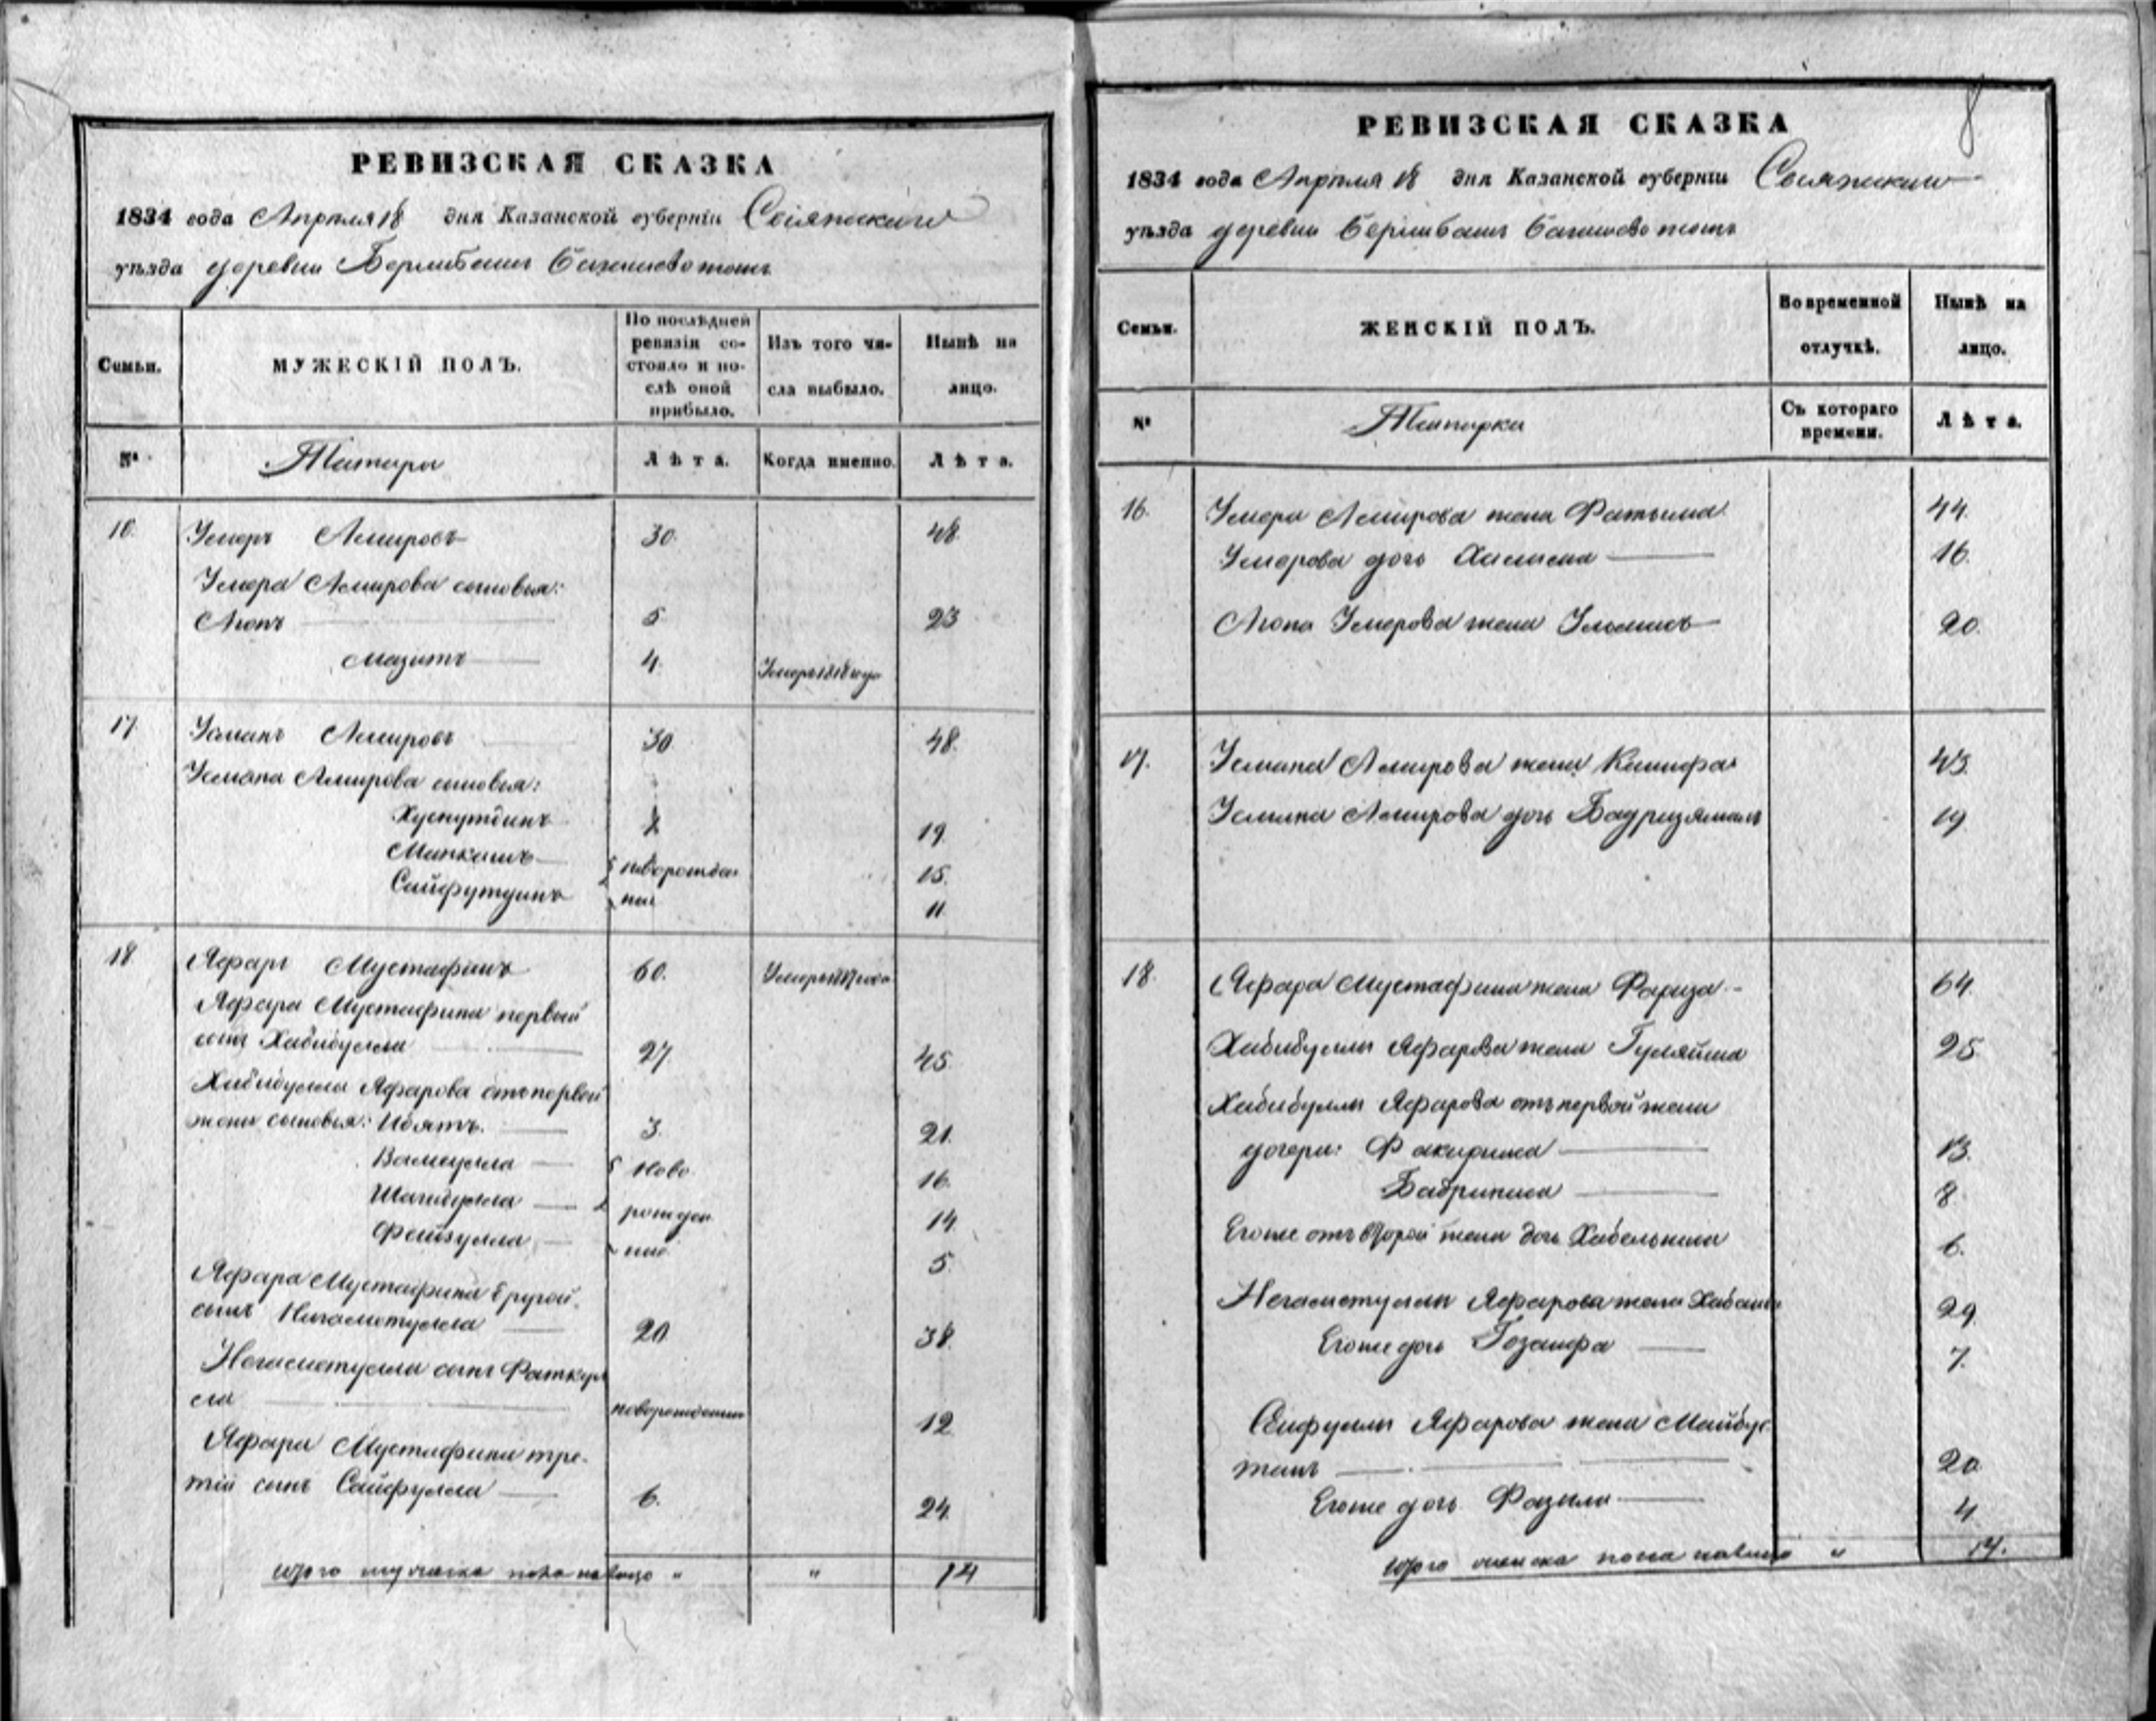 РЕВИЗСКАЯ СКАЗКА
1834 года Апрѣля 18 дня Казанской губерніи Свіяжскаго
уѣзда деревни Бурунбашъ
Семьи.
МУЖЕСКІЙ ПОЛЪ.
По послѣдней
ревизіи со-
стояло и по-
слѣ оной
прибыло.
Изъ того чи-
сла выбыло.
Нынѣ на
лицо.
№
Татара
Лѣта.
Когда именно.
Лѣта.
16. Умеръ Амировъ 30. 48.
Умера Амирова сыновья:
Аюпъ 5 23
Мазитъ 4. Умеръ 1818 году
17 Усманъ Амировъ 30. 48.
Усмана Амирова сыновья:
Хуснутдинъ 19.
15.
Сайфутдинъ 11
новорожден
ные
18 Яфаръ Мустафинъ 60. Умеръ
Яфара Мустафина первый
сынъ Хабибулла 27 45.
Хабибуллы Яфарова отъ первой
жены сыновья: Ибятъ. 3. 21.
Валиулла Ново 16.
Шагидулла рожден 14
Фейзулла ные 5.
Яфара Мустафина другой
сынъ Нигаметулла 20 38.
Негаметуллы сынъ Фаткул
ла новорожденный 12
Яфара Мустафина тре-
тій сынъ Сайфулла 6. 24.
Итого мужеска пола на лицо " " 14
8
РЕВИЗСКАЯ СКАЗКА
1834 года Апрѣля 18 дня Казанской губерніи Свіяжскаго
уѣзда деревни
Семьи.
ЖЕНСКІЙ ПОЛЪ.
Во временной
отлучкѣ.
Нынѣ на
лицо.
№
Татарки
Съ котораго
времени.
Лѣта.
16. Умера Амирова жена Фатыма 44.
Умерова дочь 16.
Аюпа Умерова жена 20.
17. Усмана Амирова жена Кашифа 43.
Усмана Амирова дочь Бадризяманъ 19
18. Яфара Мустафина жена Фариза 64.
Хабибуллы Яфарова жена Гуляйша 25
Хабибуллы Яфарова отъ первой жены
дочери: 13.
Бадриниса 8
Его же отъ второй жены дочь 6.
Негаметуллы Яфарова жена 29
Его же дочь Гозаифа 7.
Сайфуллы Яфарова жена Майбус
20
Его же дочь Фазыла 4
Итого женска пола налицо " 14.